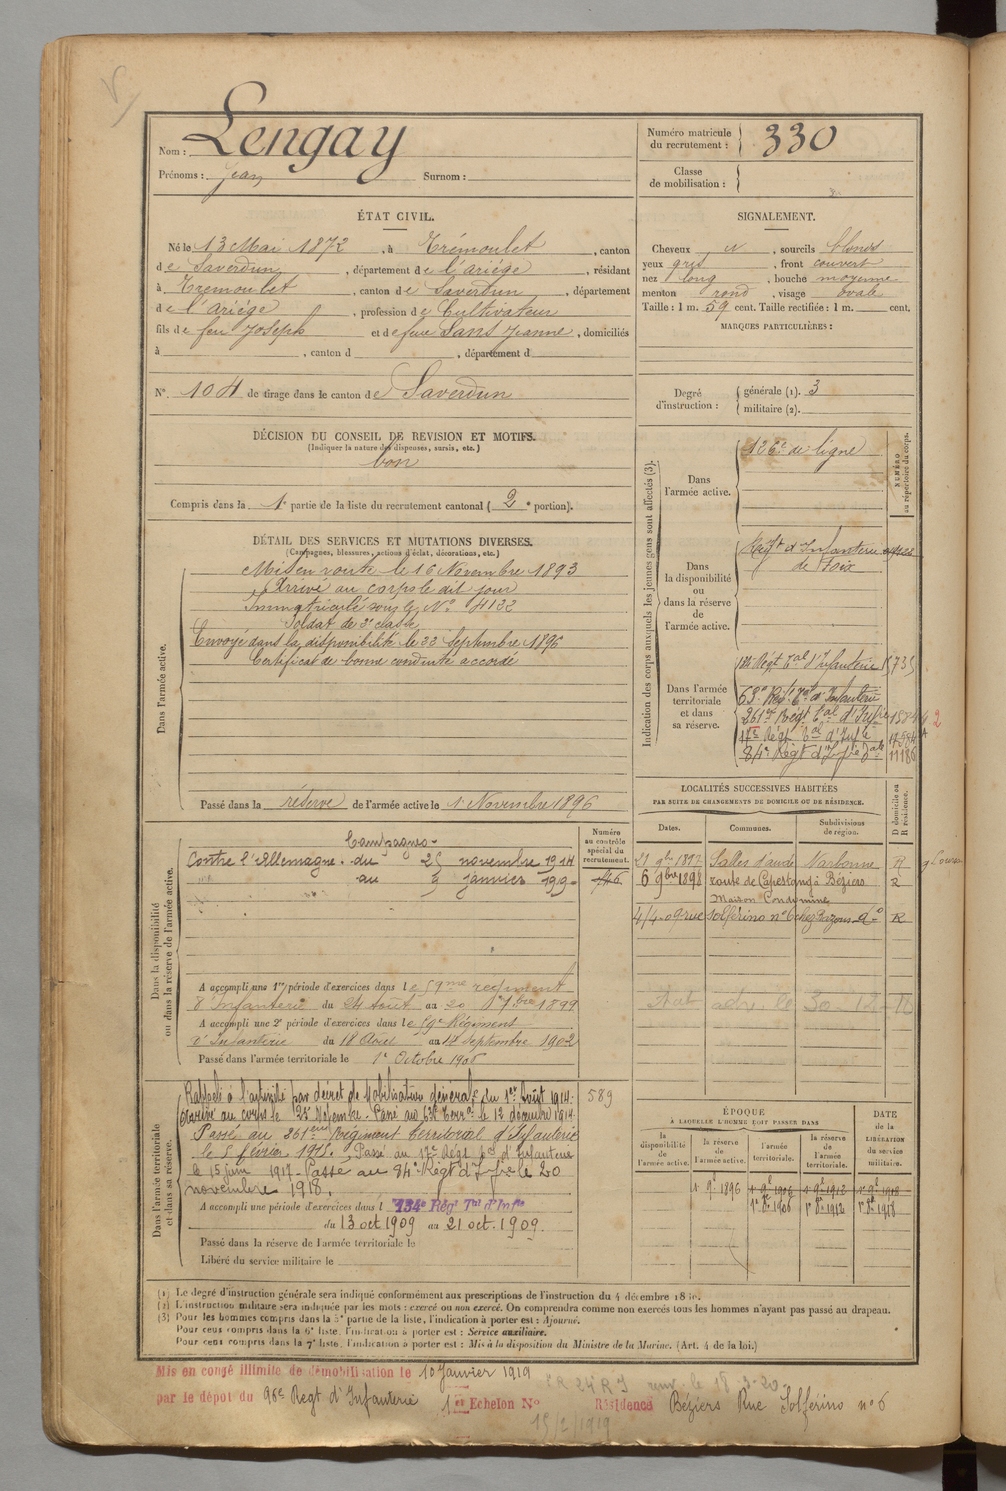 Nom : Lengay
Prénoms : Jean Surnom :
Numéro matricule du recrutement : 330
Classe de mobilisation :
ÉTAT CIVIL.
Né le 13 Mai 1872, à Trémoulet, canton
de Saverdun, département de l'ariége, résidant
à Tremoulet, canton de Saverdun, département
de l'Ariége, profession de Cultivateur
fils de feu Joseph et de feue Sans Jeanne, domiciliés
à , canton d , département d
N° 104 de tirage dans le canton de Saverdun
SIGNALEMENT.
Cheveux et, sourcils blonds
yeux gris, front couvert
nez long, bouche moyenne
menton rond, visage ovale
Taille : 1 m. 59 cent. Taille rectifiée : 1 m. cent.
MARQUES PARTICULIÈRES :
Degré d'instruction : générale (1). 3
militaire (2).
DÉCISION DU CONSEIL DE REVISION ET MOTIFS.
(Indiquer la nature des dispenses, sursis, etc.)
bon
Compris dans la 1e partie de la liste du recrutement cantonal ( 2e portion).
DÉTAIL DES SERVICES ET MUTATIONS DIVERSES.
(Campagnes, blessures, actions d'éclat, décorations, etc.)
Dans l'armée active.
Mis en route le 16 Novembre 1893
Arrivé au corps le dit jour
Immatriculé sous le N° 4132
Soldat de 2e classe
Envoyé dans la disponibilité le 22 Septembre 1896
Certificat de bonne conduite accordé
Passé dans la réserve de l'armée active le 1 Novembre 1896
Indication des corps auxquels les jeunes gens sont affectés (3).
NUMÉRO au répertoire du corps.
Dans l'armée active.
126e de ligne
Dans la disponibilité ou dans la réserve de l'armée active.
Régt d'Infanterie
de Foix
Dans l'armée territoriale et dans sa réserve.
134 Régt Tal d'Infanterie
63e Régt Tal d'Infanterie
261e Régt Tal d'Infie
17e Régt Tal d'Infie
84e Régt d'Infie Tale 11186
LOCALITÉS SUCCESSIVES HABITÉES
PAR SUITE DE CHANGEMENTS DE DOMICILE OU DE RÉSIDENCE.
Dates. Communes. Subdivisions de région. D domicile ou R résidence.
Salles d'aude Narbonne R
6 9bre 1898 route de Capestang à Béziers R
Maison Condamine
rue Solférino n° 6 do R
Dans la disponibilité ou dans la réserve de l'armée active.
Numéro au contrôle spécial du recrutement.
Campagnes
Contre l'Allemagne. du 25 novembre 1914
au 9 janvier 1919
A accompli une 1re période d'exercices dans le 59me regiment
d'Infanterie du 24 aout au 20 7bre 1899
A accompli une 2e période d'exercices dans le 59e Régiment
d'Infanterie du 18 Aout au 14 Septembre 1902
Passé dans l'armée territoriale le 1er Octobre 1906
Dans l'armée territoriale et dans sa réserve.
589
Rappelé à l'activité par décret de Mobilisation générale du 1er Août 1914.
Arrivé au corps le 25 Novembre. Passé au 63e Terral le 12 décembre 1914.
Passé au 261eme régiment territorial d'Infanterie
le 5 février 1915. Passé au 17e Régt Tal d'Infanterie
le 15 juin 1917. Passé au 84e Régt d'Infie le 20
novembre 1918.
A accompli une période d'exercices dans l 134e Régt Tal d'Infie
du 13 oct 1909 au 21 oct. 1909.
Passé dans la réserve de l'armée territoriale le
Libéré du service militaire le
ÉPOQUE
À LAQUELLE L'HOMME DOIT PASSER DANS
DATE de la LIBÉRATION du service militaire.
la disponibilité de l'armée active. la réserve de l'armée active. l'armée territoriale. la réserve de l'armée territoriale.
1er 9bre 1896 1er 9bre 1906 1er 9bre 1912 1er 9bre 1918
1er 8bre 1906 1er 8bre 1912 1er 8bre 1918
(1) Le degré d'instruction générale sera indiqué conformément aux prescriptions de l'instruction du 4 décembre
(2) L'instruction militaire sera indiquée par les mots : exercé ou non exercé. On comprendra comme non exercés tous les hommes n'ayant pas passé au drapeau.
(3) Pour les hommes compris dans la 5e partie de la liste, l'indication à porter est : Ajourné.
Pour ceux compris dans la 6e liste, l'indication à porter est : Service auxiliaire.
Pour ceux compris dans la 7e liste, l'indication à porter est : Mis à la disposition du Ministre de la Marine. (Art. 4 de la loi.)
Mis en congé illimité de démobilisation le 10 Janvier 1919
par le dépôt du 96e Regt d'Infanterie 1er Echelon N° Résidence Béziers Rue Solférino n° 6
15/2/1919